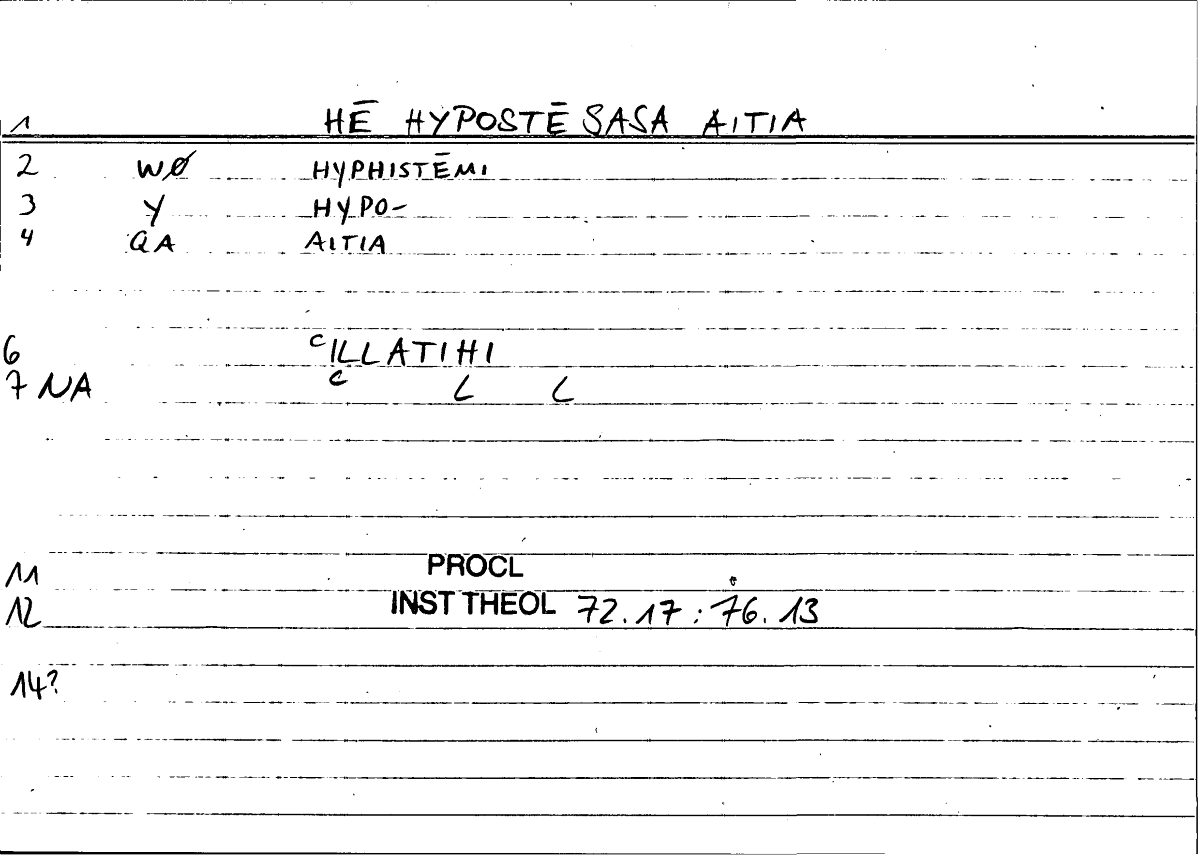 1 HĒ HYPOSTĒSASA AITIA
2 WØ HYPHISTĒMI
3 Y HYPO-
4 QA AITIA
6 ᶜILLATIHI
7 NA c L L
11 PROCL
12 INST THEOL 72.17 : 76.13
14?